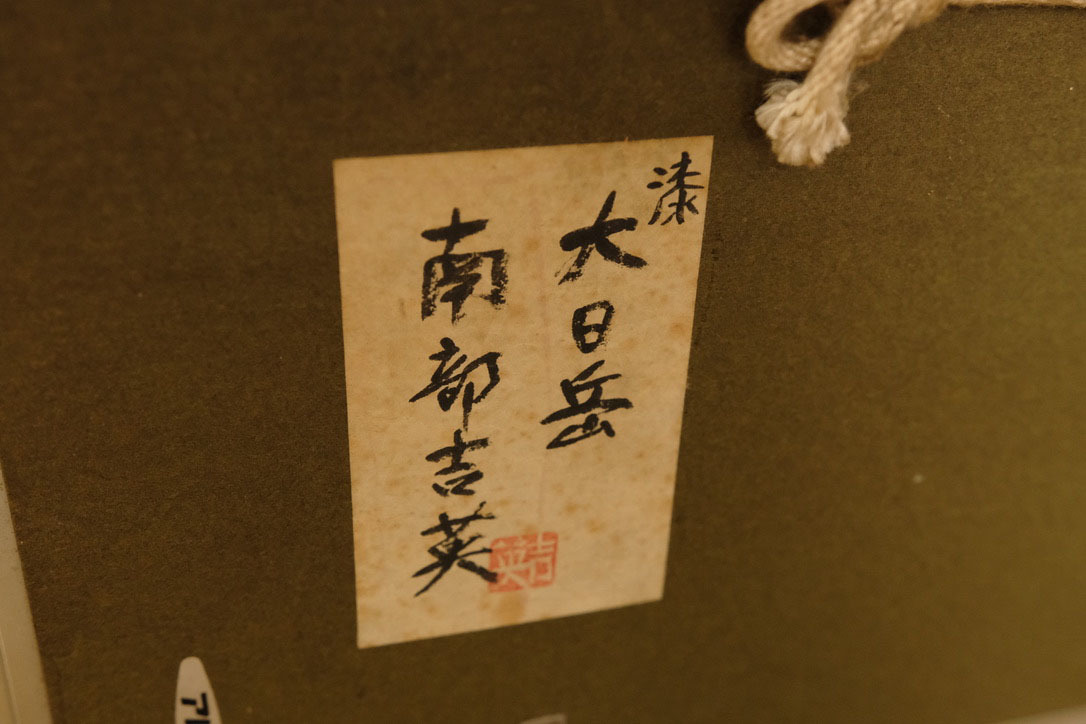 漆
大日岳
南部吉英
吉英